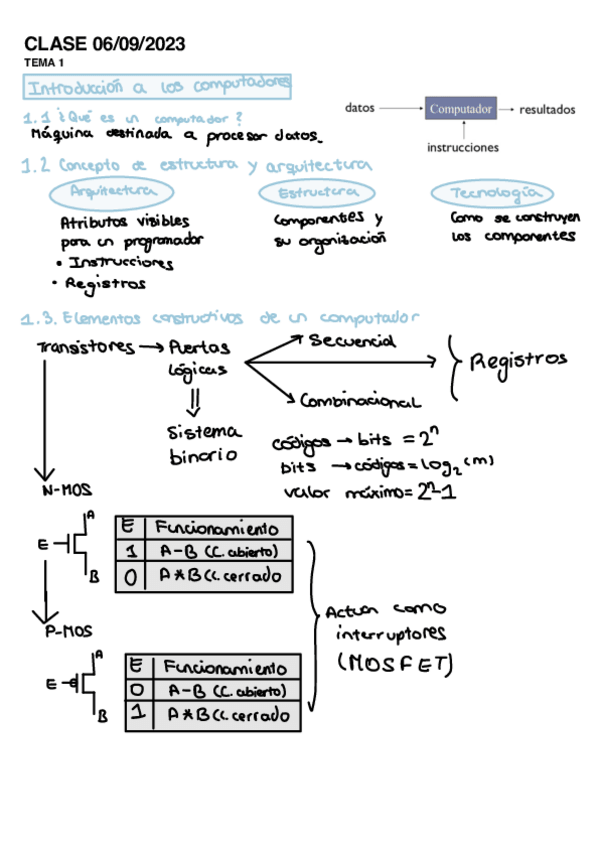 CLASE 06/09/2023
TEMA 1
Introducción a los computadores
1.1 ¿Qué es un computador?
Máquina destinada a procesar datos.
datos
Computador
resultados
instrucciones
1.2 Concepto de estructura y arquitectura
Arquitectura
Estructura
Tecnología
Atributos visibles
para un programador
• Instrucciones
• Registros
Componentes y
su organización
Como se construyen
los componentes
1.3. Elementos constructivos de un computador
Transistores → Puertas
lógicas
Secuencial
Combinacional
Registros
Sistema
binario
códigos → bits = 2^n
bits → códigos = log₂(m)
valor máximo = 2^n-1
N-MOS
A
E
B
E Funcionamiento
1 A-B (C. abierto)
0 A*B (C. cerrado
P-MOS
A
E
B
E Funcionamiento
0 A-B (C. abierto)
1 A*B (C. cerrado
Actúan como
interruptores
(MOSFET)